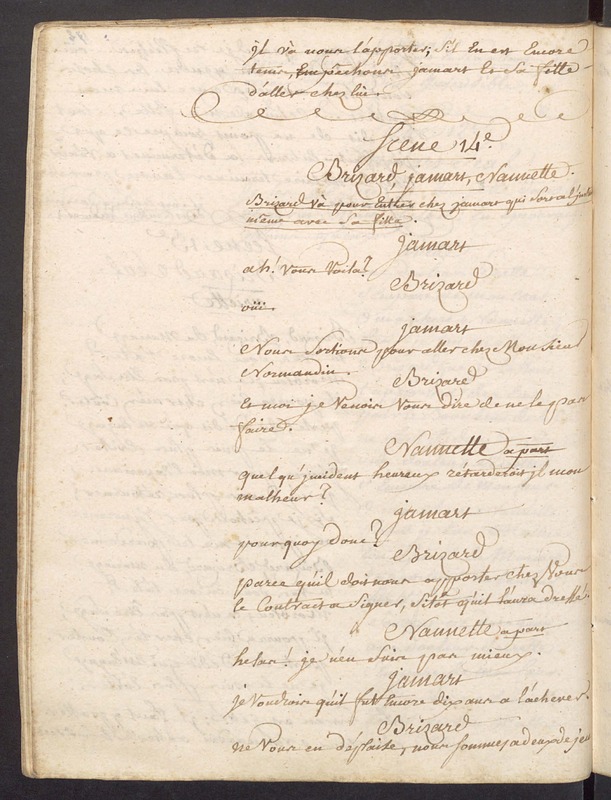 jl và nous l'apporter; s'il En est Encore
tems, Empêchons jamart Et Sa fille
d'aller chez lui.
Scene 14e.
Brizard, jamart, Nannette.
Brizard và pour Entrer chez jamart qui Sort à l'jnstant
même avec Sa fille.
jamart
ah! Vous Voila?
Brizard
oüi.
jamart
Nous Sortions pour aller chez Monsieur
Normandin.
Brizard
Et moi je Venois Vous dire de ne le pas
faire.
Nannette apart
quelqu'jncident heureux rétarderoit jl mon
malheur?
jamart
pourquoy donc?
Brizard
parce qu'il doit nous apporter chez Vous
le Contract a Signer, Sitôt qu'il l'aura dressé.
Nannette apart
helas! je n'en Suis pas mieux.
jamart
je Voudrois qu'il fut Encore dix ans a l'achever.
Brizard
ne Vous en déplaise, nous sommes a deux de jeu